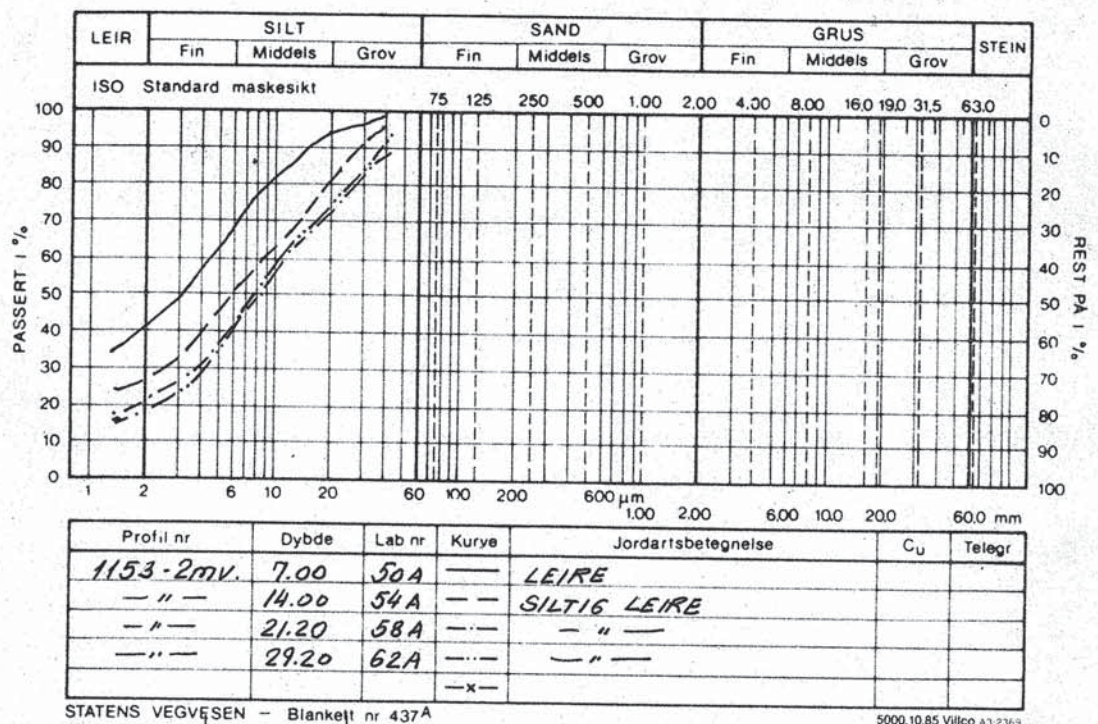 LEIR SILT SAND GRUS STEIN
Fin Middels Grov Fin Middels Grov Fin Middels Grov
ISO Standard maskesikt 75 125 250 500 1.00 2.00 4.00 8.00 16.0 19.0 31.5 63.0
100 0
90 10
80 20
70 30
60 40
50 50
40 60
30 70
20 80
10 90
0 100
PASSERT I %
REST PÅ I %
1 2 6 10 20 60 100 200 600 µm
1.00 2.00 6.00 10.0 20.0 60.0 mm
Profil nr Dybde Lab nr Kurve Jordartsbetegnelse Cu Telegr
1153-2mv. 7.00 50A LEIRE
— " — 14.00 54A SILTIG LEIRE
— " — 21.20 58A — " —
— " — 29.20 62A — " —
—x—
STATENS VEGVESEN – Blankett nr 437A 5000.10.85 Villco A3-2369